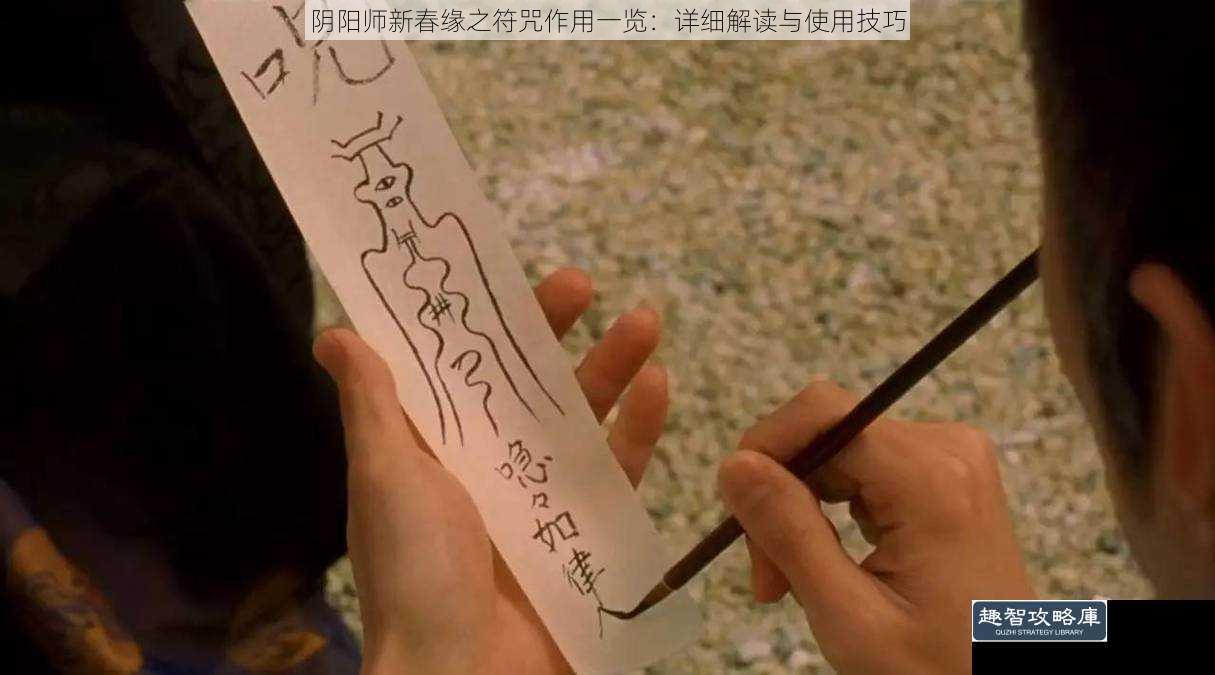 阴阳师新春缘之符咒作用一览：详细解读与使用技巧
呪
喼々如律
趣智攻略庫
QUZHI STRATEGY LIBRARY